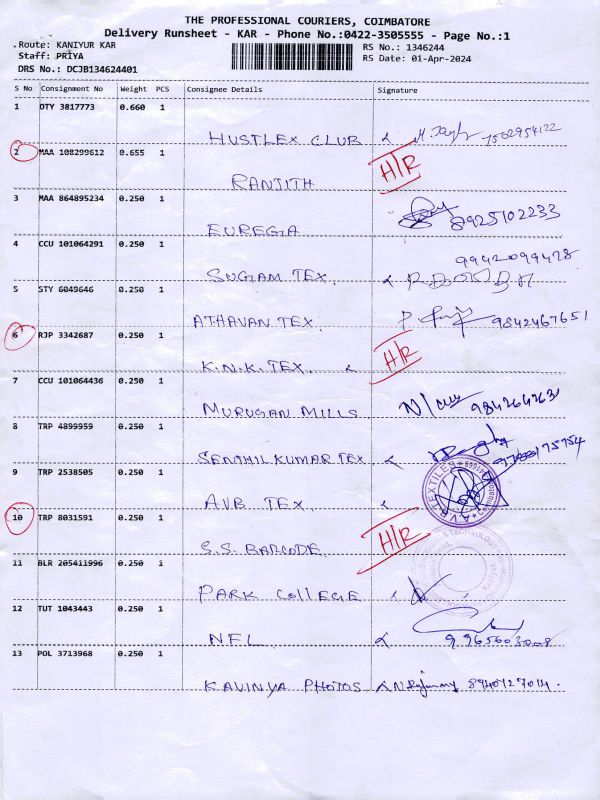 THE PROFESSIONAL COURIERS, COIMBATORE
Delivery Runsheet - KAR - Phone No.:0422-3505555 - Page No.:1
Route: KANIYUR KAR RS No.: 1346244
Staff: PRIYA RS Date: 01-Apr-2024
DRS No.: DCJB134624401
S No Consignment No Weight PCS Consignee Details Signature
1 DTY 3817773 0.660 1
HUSTLEX CLUB 7562954122
2 MAA 108299612 0.655 1 H/R
RANJITH
3 MAA 864895234 0.250 1 8925102233
EUREGIA
4 CCU 101064291 0.250 1 9942099428
SUGAM TEX.
5 STY 6049646 0.250 1
ATHAVAN TEX. 9842467651
6 RJP 3342687 0.250 1 H/R
K.N.K. TEX.
7 CCU 101064436 0.250 1
MURUGAN MILLS 984264263
8 TRP 4899959 0.250 1
SENTHIL KUMAR TEX
9 TRP 2538505 0.250 1
AVB TEX
10 TRP 8031591 0.250 1 H/R
S.S. BARCODE
11 BLR 205411996 0.250 1
PARK COLLEGE
12 TUT 1043443 0.250 1
NFL 9965603008
13 POL 3713968 0.250 1
KAVINYA PHOTOS 8940727014